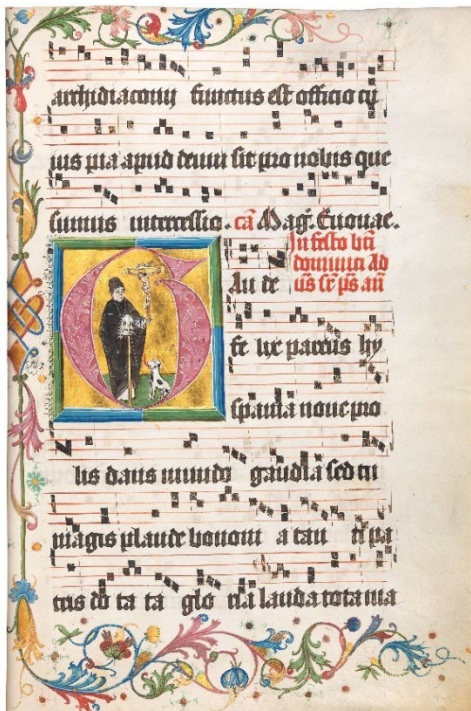 archidiaconij functus est officio cu
ius pia apud deum sit pro nobis que
sumus intercessio. cā Mag. Euouae.
In festo bti
dominici Ad
G Au de
fe lix parens hy
spania noue pro
lis dans mundo gaudia sed tu
magis plaude bononi a tan ti pa
tris do ta ta glo ria lauda tota ma